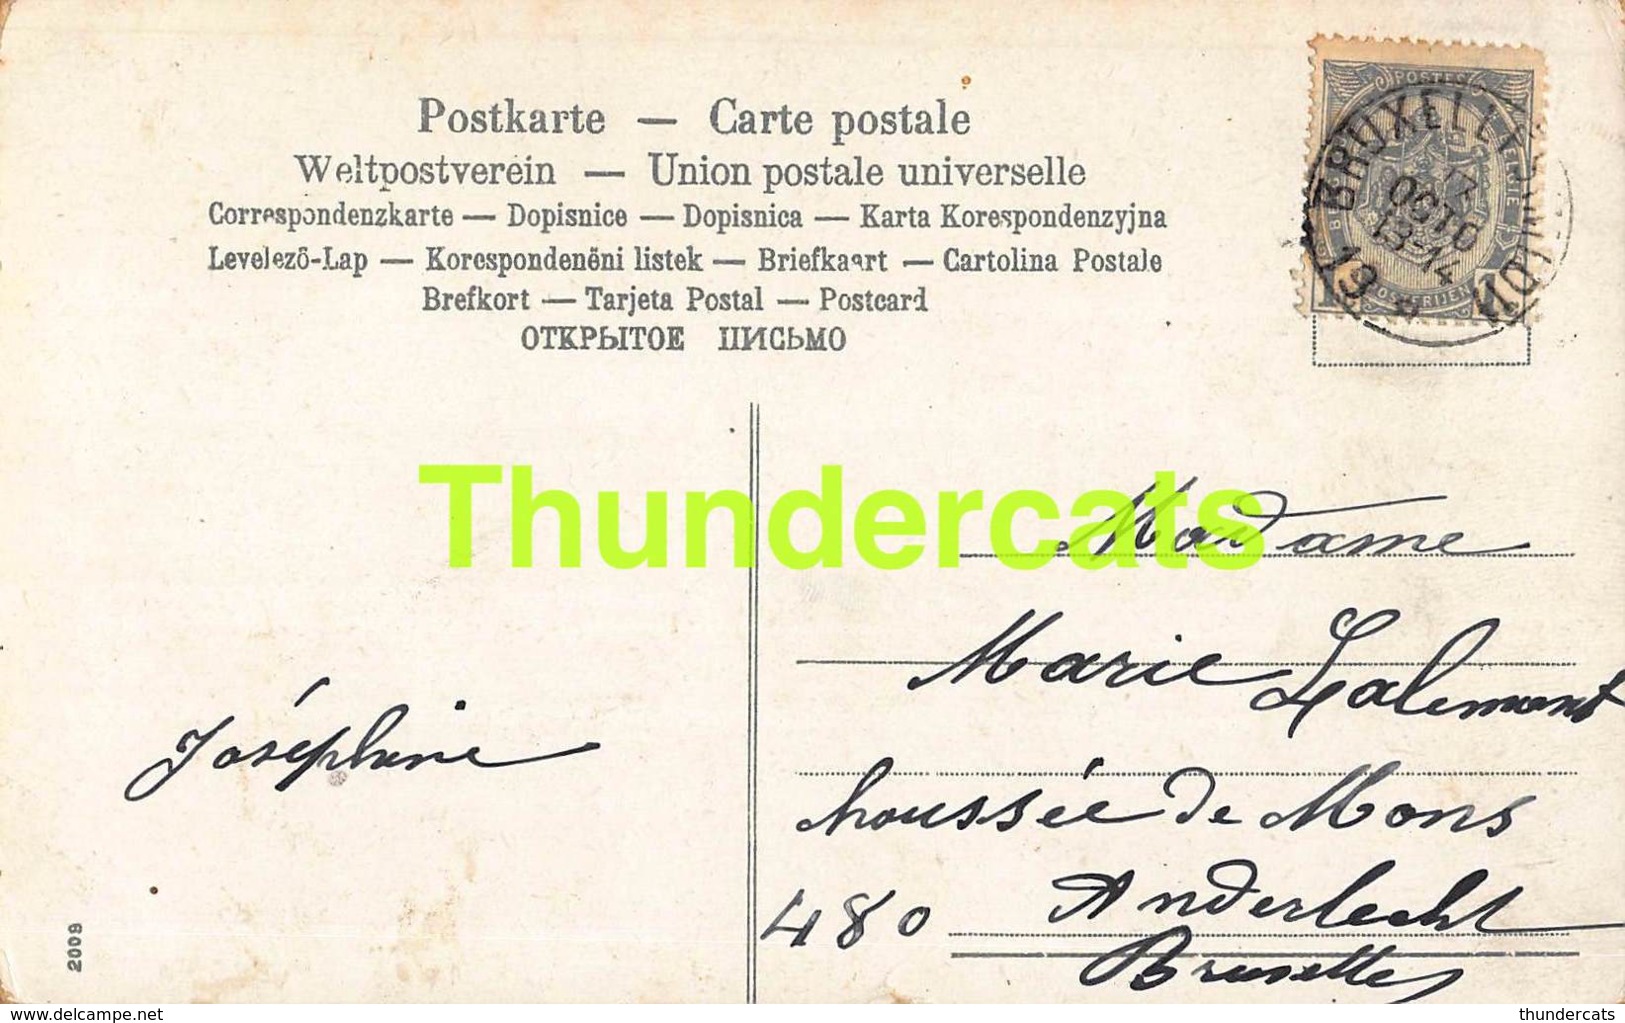 Postkarte — Carte postale
Weltpostverein — Union postale universelle
Correspondenzkarte — Dopisnice — Dopisnica — Karta Korespondenzyjna
Levelező-Lap — Korespondenčni listek — Briefkaart — Cartolina Postale
Brefkort — Tarjeta Postal — Postcard
ОТКРЫТОЕ ПИСЬМО
POSTES
BRUXELLES
17
OCTO
13-14
19
POSTERIJEN
Thundercats
Madame
Marie Lalemant
Joséphine
houssée de Mons
480 Anderlecht
Bruxelles
2009
www.delcampe.net
thundercats